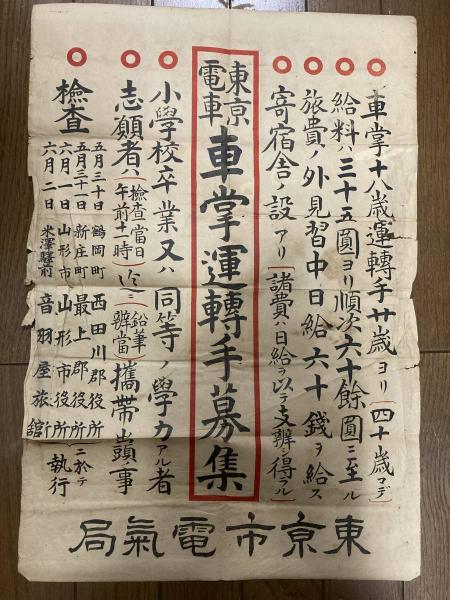 車掌十八歳運轉手廿歳ヨリ(四十歳マデ)
給料ハ三十五圓ヨリ順次六十餘圓ニ至ル
旅費ノ外見習中日給六十錢ヲ給ス
寄宿舎ノ設アリ(諸費ハ日給ヲ以テ支辨シ得ラル)
東京電車 車掌運轉手募集
小學校卒業又ハ同等ノ學力アル者
志願者ハ(檢査當日午前十一時)迄ニ(鉛筆辨當)攜帶出頭ノ事
檢査
五月三十日 鶴岡町 西田川郡役所
五月三十一日 新庄町 最上郡役所
六月一日 山形市 山形市役所
六月二日 米澤驛前 音羽屋旅舘
ニ於テ執行
東京市電氣局